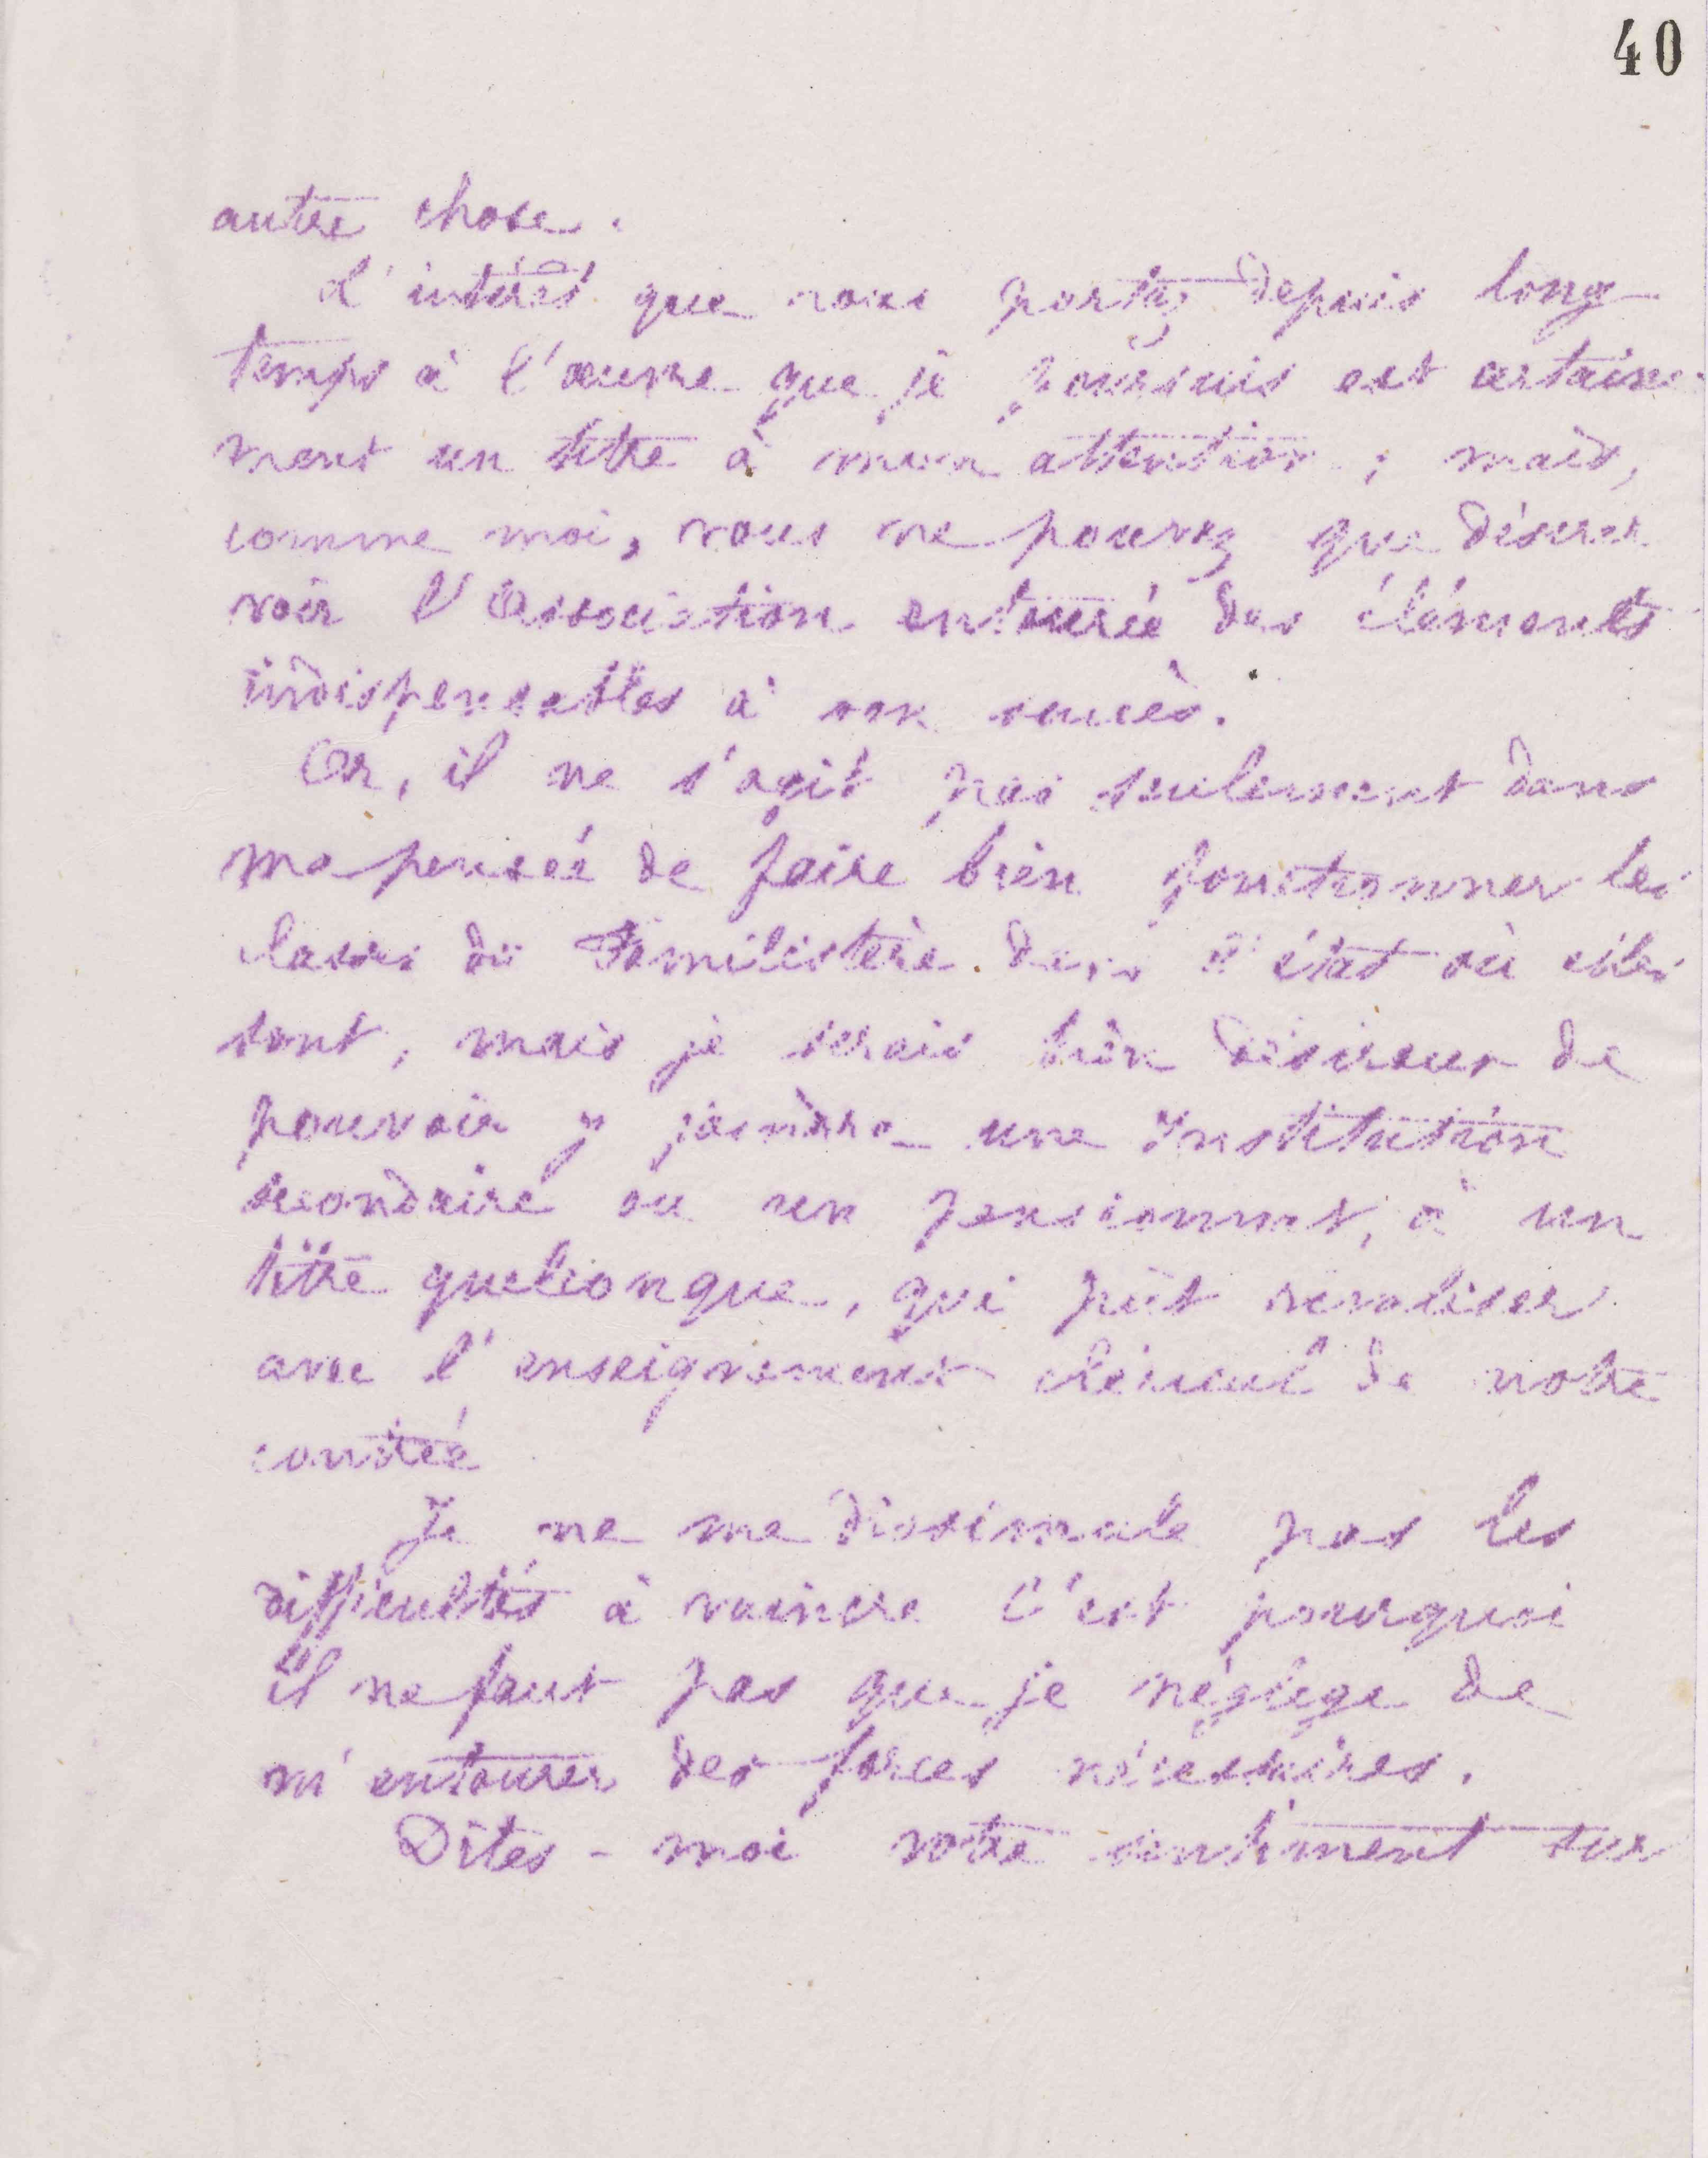 40
autre chose.
L'intérêt que vous portez depuis long
temps à l'œuvre que je poursuis est certaine
ment un titre à mon attention ; mais,
comme moi, vous ne pouvez que désirer
voir l'Association entourée des éléments
indispensables à son succès.
Or, il ne s'agit pas seulement dans
ma pensée de faire bien fonctionner les
classes du Familistère dans l'état où elles
sont, mais je serais bien désireux de
pouvoir y joindre une Institution
secondaire ou un pensionnat, à un
titre quelconque, qui pût rivaliser
avec l'enseignement clérical de notre
contrée
Je ne me dissimule pas les
difficultés à vaincre c'est pourquoi
il ne faut pas que je néglige de
m'entourer des forces nécessaires.
Dites-moi votre sentiment sur